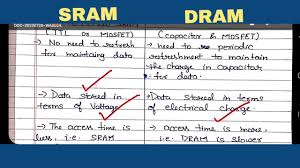 SRAM
DRAM
(TTL or MOSFET)
(capacitor & MOSFET)
- No need to refresh
for maintaing data
- need to periodic
refreshment to maintain
the charge in capacitor
for data.
- Data stored in
terms of Voltage
- Data stored in terms
of electrical charge.
- The access time is
less, i.e. SRAM
- access time is more,
i.e. DRAM is slower